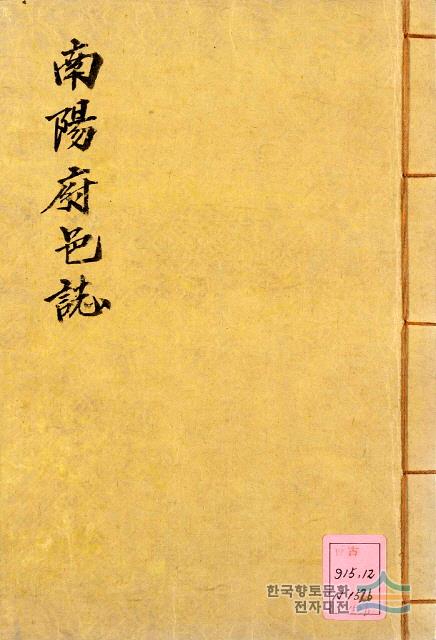 南陽府邑誌
古
915.12
한국향토문화
전자대전